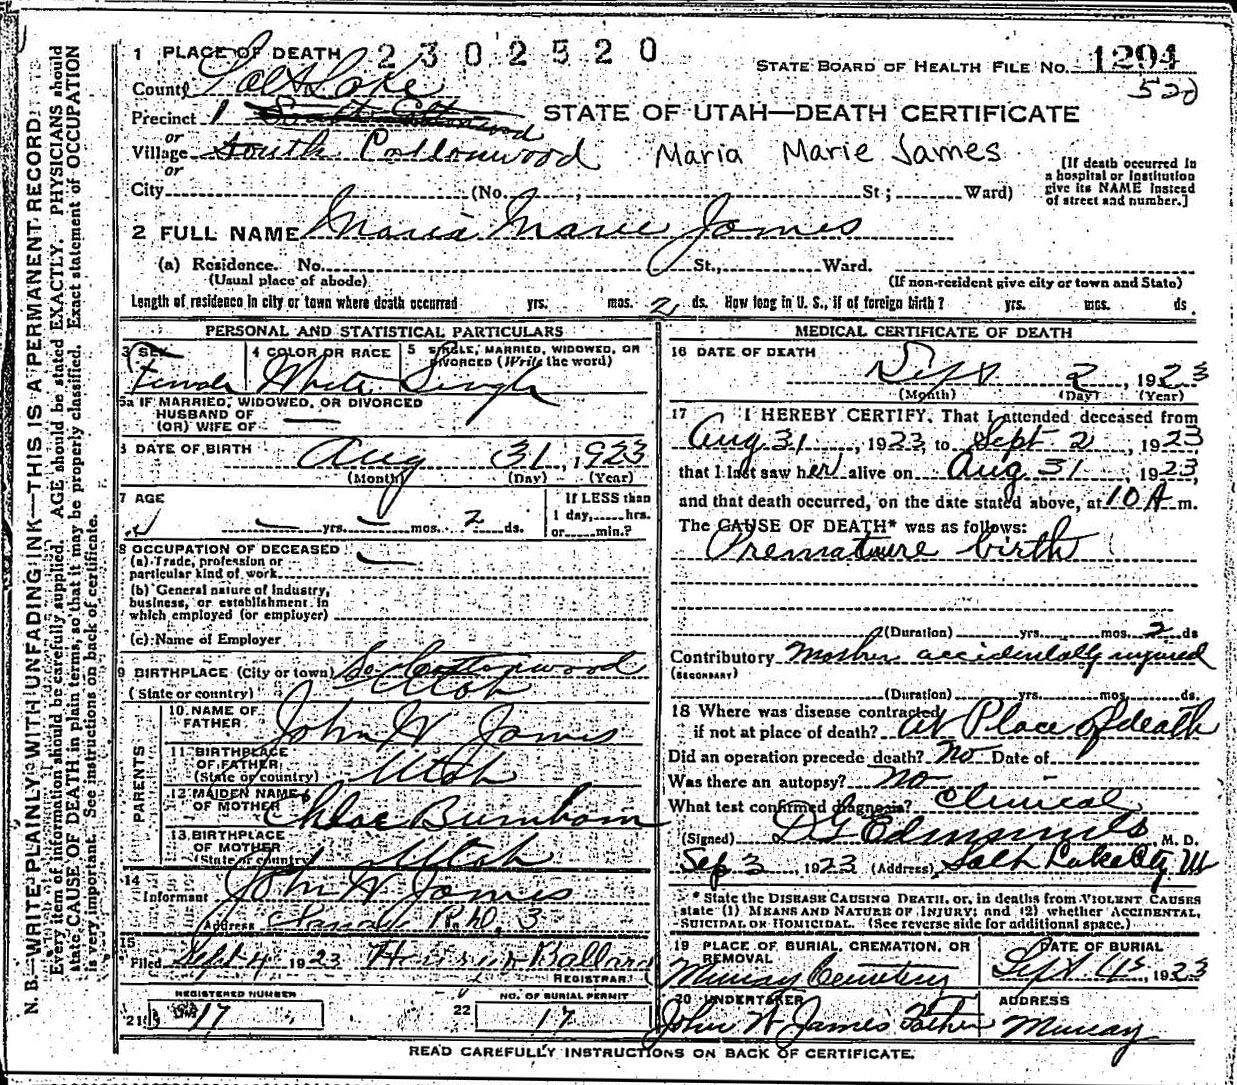 1 PLACE OF DEATH 2302520
STATE BOARD OF HEALTH FILE NO. 1294
County Salt Lake 520
Precinct 1 South Cottonwood
STATE OF UTAH—DEATH CERTIFICATE
or
Village South Cottonwood Maria Marie James
or
City (No. , St ; Ward)
[If death occurred in
a hospital or institution
give its NAME instead
of street and number.]
2 FULL NAME Maria Marie James
(a) Residence. No. St., Ward.
(Usual place of abode) (If non-resident give city or town and State)
Length of residence in city or town where death occurred yrs. mos. 2 ds. How long in U. S., if of foreign birth? yrs. mos. ds.
PERSONAL AND STATISTICAL PARTICULARS
3 SEX 4 COLOR OR RACE 5 SINGLE, MARRIED, WIDOWED, OR
DIVORCED (Write the word)
Female White Single
5a IF MARRIED, WIDOWED, OR DIVORCED
HUSBAND OF
(OR) WIFE OF —
6 DATE OF BIRTH Aug 31, 1923
(Month) (Day) (Year)
7 AGE If LESS than
— yrs. — mos. 2 ds. 1 day, hrs.
or min.?
8 OCCUPATION OF DECEASED —
(a) Trade, profession or
particular kind of work
(b) General nature of Industry,
business, or establishment in
which employed (or employer)
(c) Name of Employer
9 BIRTHPLACE (City or town) So Cottonwood
(State or country) Utah
PARENTS
10 NAME OF
FATHER John W James
11 BIRTHPLACE
OF FATHER
(State or country) Utah
12 MAIDEN NAME
OF MOTHER Chloe Burnham
13 BIRTHPLACE
OF MOTHER
(State or country) Utah
14
Informant John W James
Address Sandy R.No. 3
15
Filed Sept 4 1923 Ballard
REGISTRAR.
REGISTERED NUMBER NO. OF BURIAL PERMIT
21 17 22 17
MEDICAL CERTIFICATE OF DEATH
16 DATE OF DEATH
Sept 2, 1923
(Month) (Day) (Year)
17 I HEREBY CERTIFY, That I attended deceased from
Aug 31, 1923 to Sept 2, 1923
that I last saw her alive on Aug 31 1923,
and that death occurred, on the date stated above, at 10 A m.
The CAUSE OF DEATH* was as follows:
Premature birth
(Duration) yrs. mos. 2 ds
Contributory Mother accidentally injured
(SECONDARY)
(Duration) yrs. mos. ds.
18 Where was disease contracted
if not at place of death? at Place of death
Did an operation precede death? No Date of
Was there an autopsy? No
What test confirmed diagnosis? Clinical
(Signed) D G Edmunds M. D.
Sep 3, 1923 (Address) Salt Lake City, Ut
* State the DISEASE CAUSING DEATH, or, in deaths from VIOLENT CAUSES
state (1) MEANS AND NATURE OF INJURY; and (2) whether ACCIDENTAL,
SUICIDAL OR HOMICIDAL. (See reverse side for additional space.)
19 PLACE OF BURIAL, CREMATION, OR DATE OF BURIAL
REMOVAL
Murray Cemetery Sept 4, 1923
20 UNDERTAKER ADDRESS
John W James Father Murray
READ CAREFULLY INSTRUCTIONS ON BACK OF CERTIFICATE.
N. B.—WRITE PLAINLY WITH UNFADING INK—THIS IS A PERMANENT RECORD.
Every item of information should be carefully supplied. AGE should be stated EXACTLY. PHYSICIANS should
state CAUSE OF DEATH in plain terms, so that it may be properly classified. Exact statement of OCCUPATION
is very important. See instructions on back of certificate.